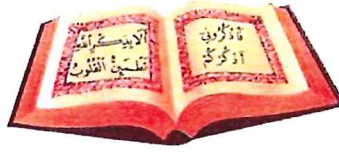 فاذكروني
أذكركم
ألا بذكر الله
تطمئن القلوب